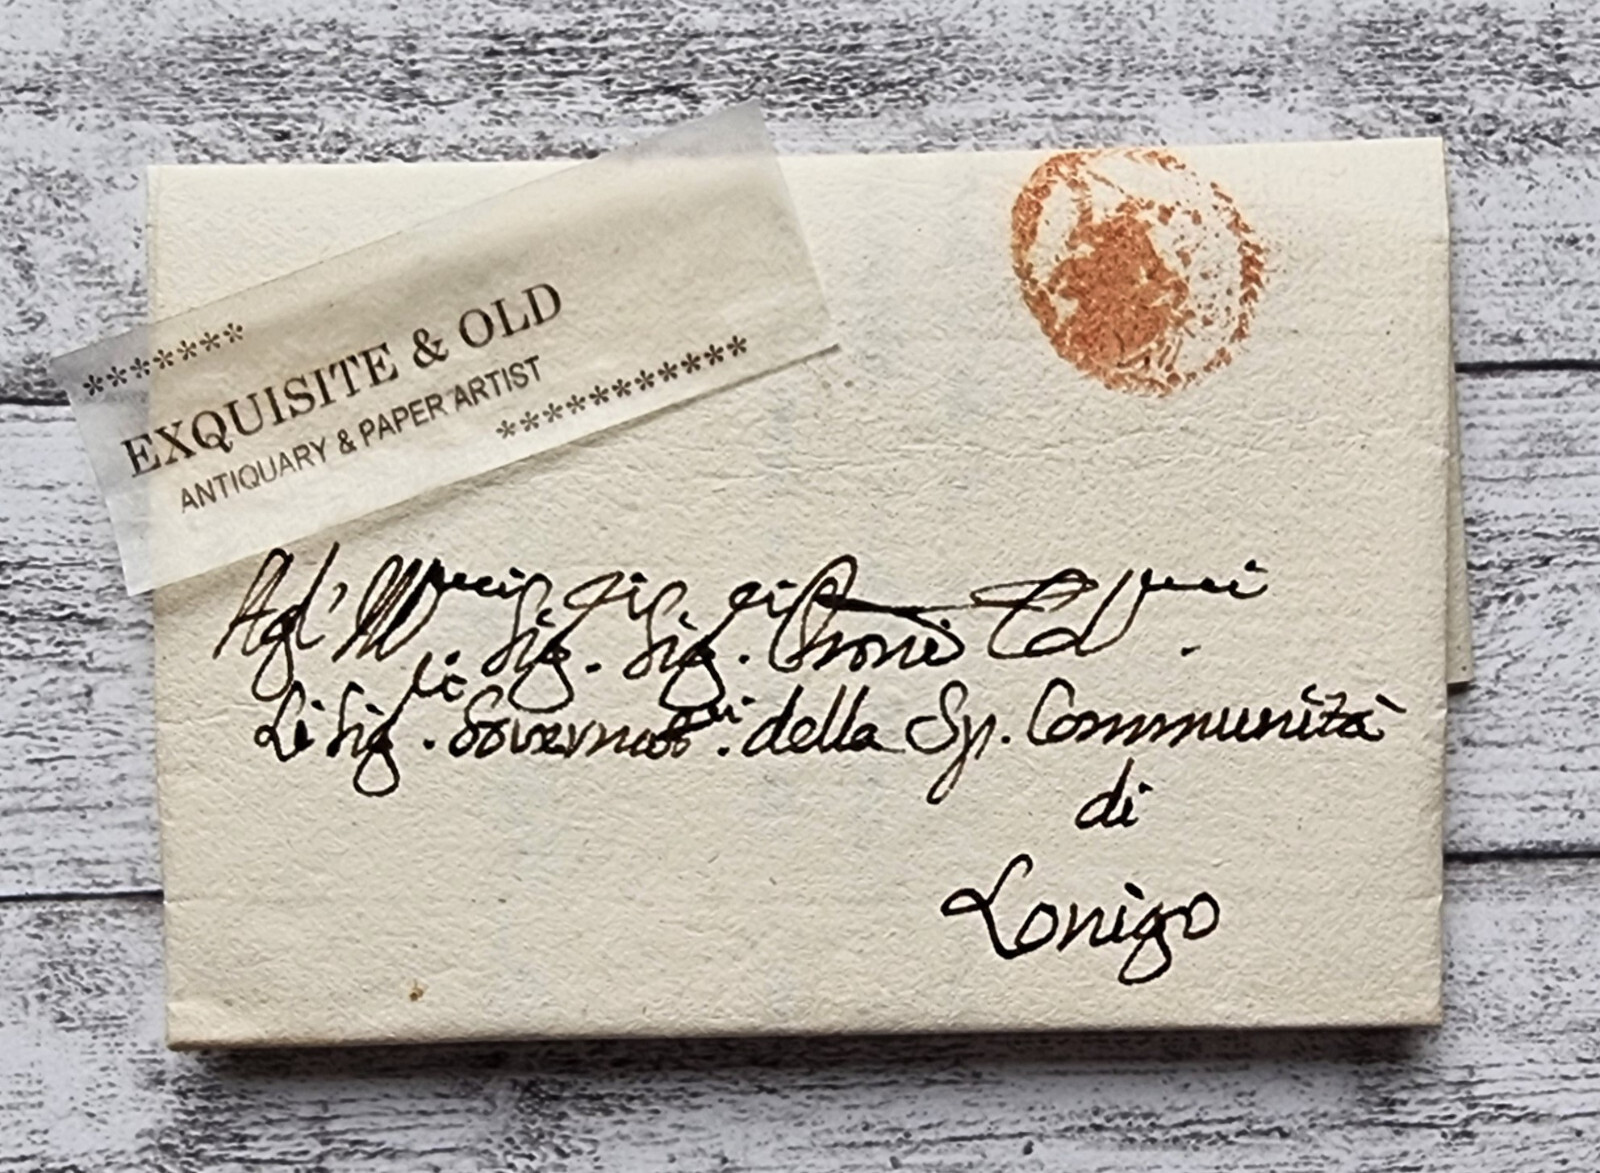 *******
EXQUISITE & OLD
ANTIQUARY & PAPER ARTIST
***********
Agl' Ill^mi Sig.^ri Sig.^ri Proni Col^mi.
Li Sig^ri. Governat^ri. della Sp. Communità
di
Lonigo